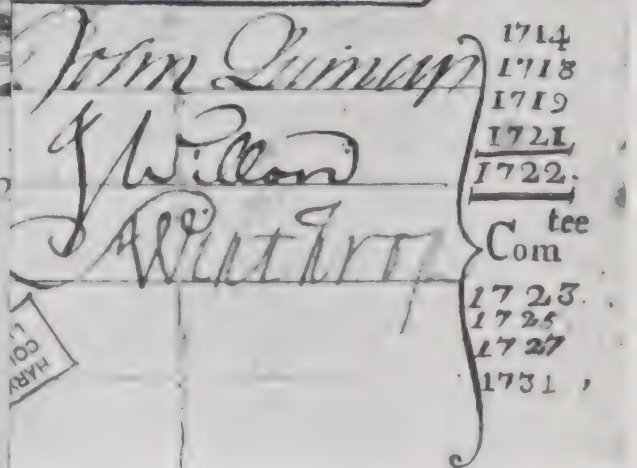 John Quincy
J Willard
A Winthrop
1714
1718
1719
1721
1722.
Com tee
1723.
1725
1727
1731
HARV
COL